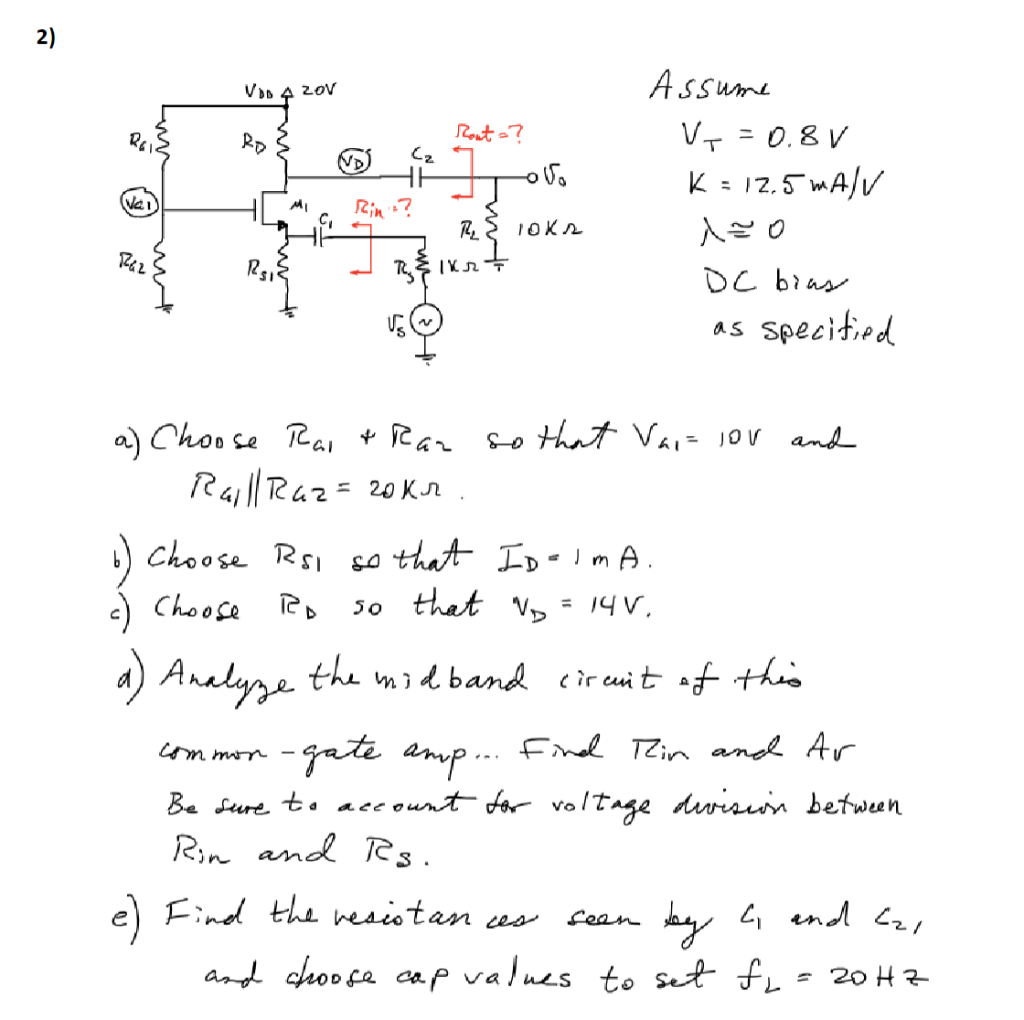 2)
VDD 20V
Assume
RG1
RD
VD
C2
Rout =?
vo
VT = 0.8V
VG1
M1
C1
Rin =?
RL 10KΩ
K = 12.5 mA/V
λ ≅ 0
RG2
RS1
RS 1KΩ
DC bias
vs
as specified
a) Choose RG1 + RG2 so that VG1 = 10V and
RG1 || RG2 = 20KΩ.
b) Choose RS1 so that ID = 1mA.
c) Choose RD so that VD = 14V.
d) Analyze the midband circuit of this
common-gate amp... Find Rin and Av
Be sure to account for voltage division between
Rin and RS.
e) Find the resistances seen by C1 and C2,
and choose cap values to set fL = 20HZ